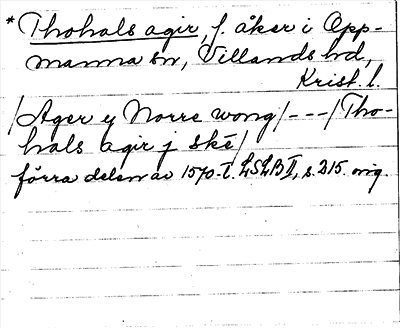 * Thohals agir, f. åker i Opp-
manna sn, Villands hd,
Krist. l.
/Ager y Norre wong/---/Tho-
hals agir j skē/
förra delen av 1570-t. LSLB II, s. 315. orig.